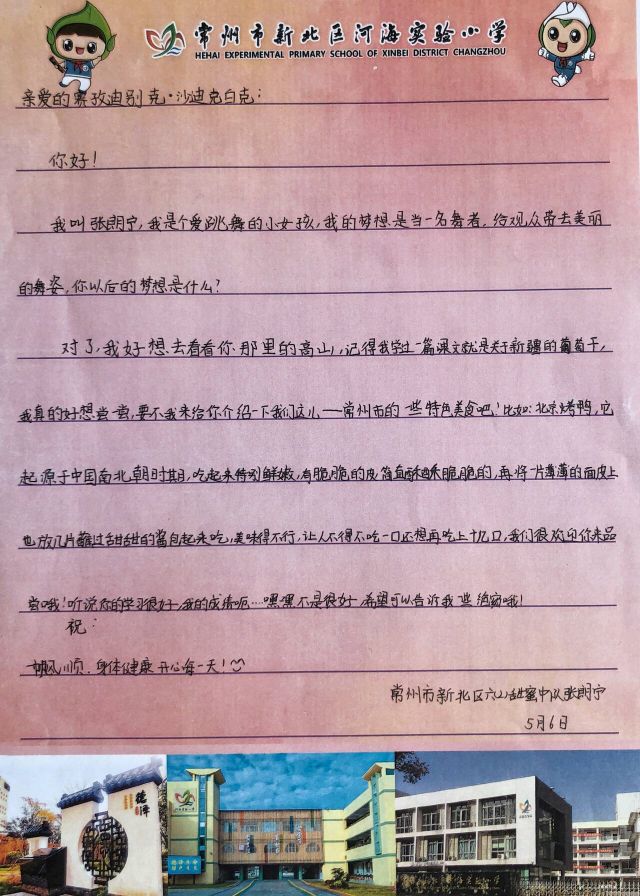 常州市新北区河海实验小学
HEHAI EXPERIMENTAL PRIMARY SCHOOL OF XINBEI DISTRICT CHANGZHOU
亲爱的赛孜迪别克·沙迪克白克：
你好！
我叫张朗宁，我是个爱跳舞的小女孩，我的梦想是当一名舞者，给观众带去美丽
的舞姿，你以后的梦想是什么？
对了，我好想去看看你那里的高山，记得我学过一篇课文就是关于新疆的葡萄干，
我真的好想尝一尝，要不我来给你介绍一下我们这儿——常州市的一些特色美食吧！比如：北京烤鸭，它
起源于中国南北朝时期，吃起来特别鲜嫩，有脆脆的皮酥酥脆脆的，再将一片薄薄的面皮上
也放几片蘸过甜甜的酱包起来吃，美味得不行，让人不得不吃一口还想再吃上十几口，我们很欢迎你来品
尝哦！听说你的学习很好，我的成绩呃…嘿嘿不是很好，希望可以告诉我一些绝窍哦！
祝：
一帆风顺、身体健康 开心每一天！
常州市新北区六(2)甜蜜中队张朗宁
5月6日
德泽